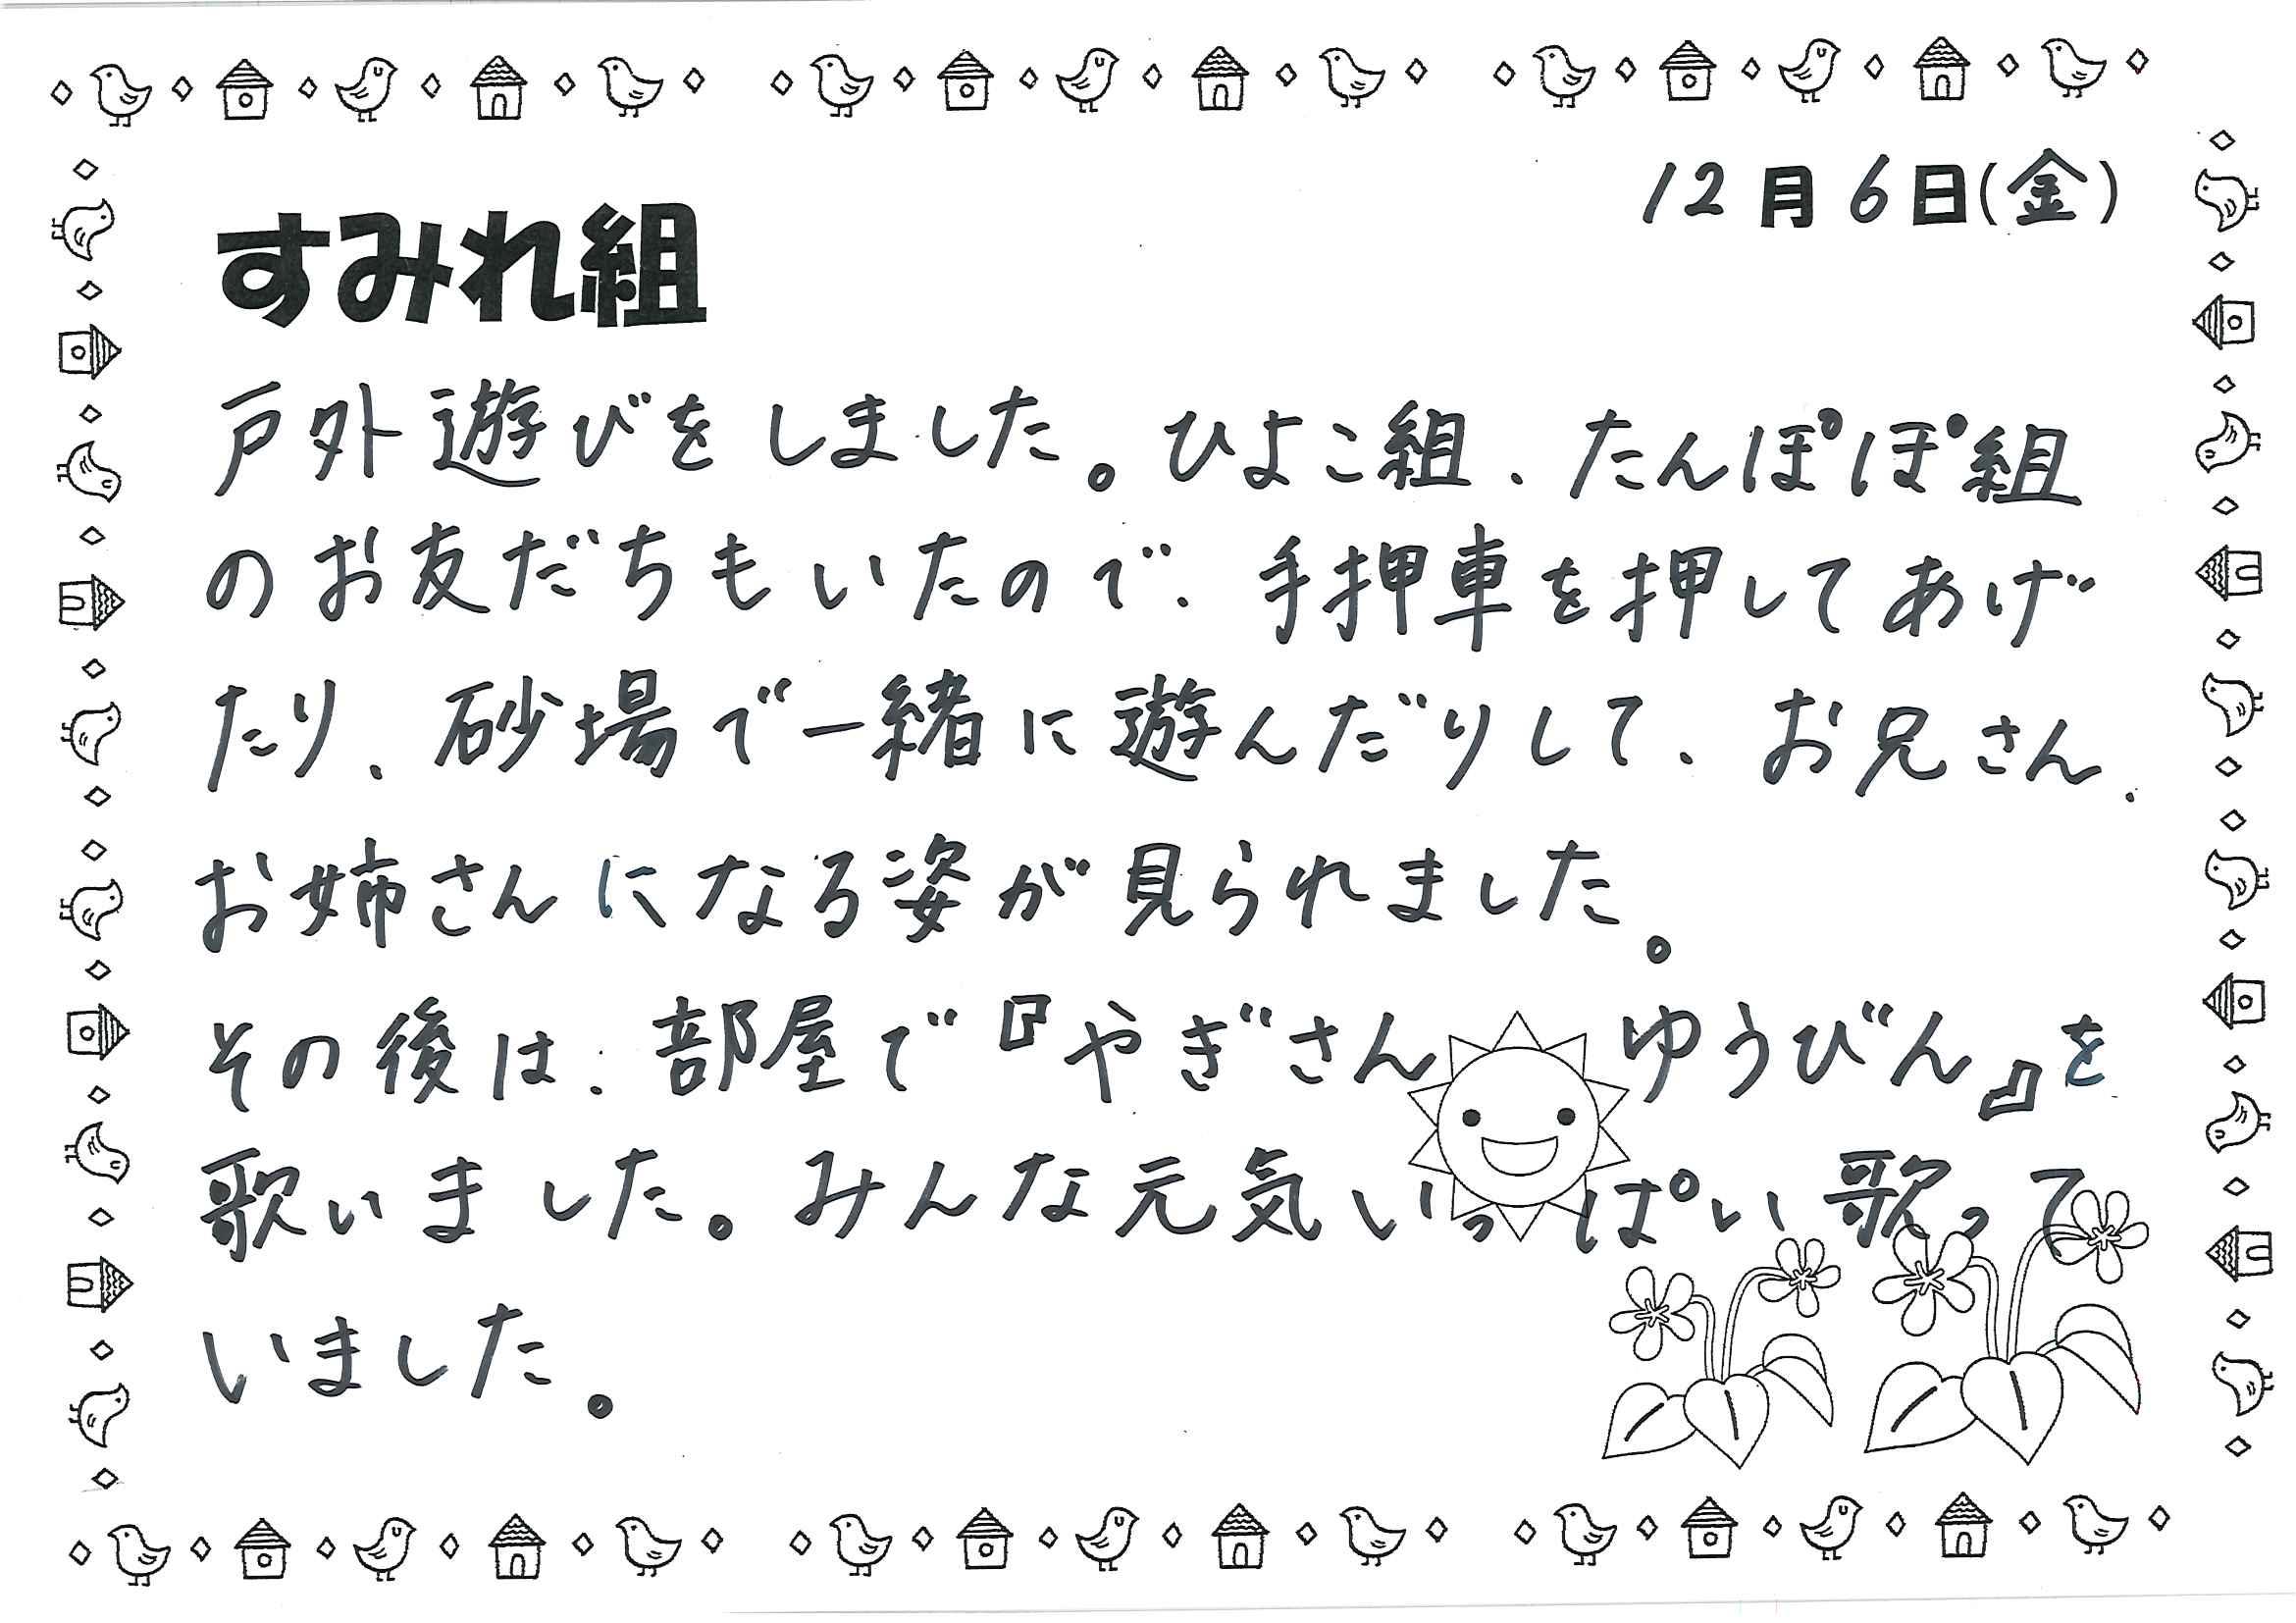 12月6日(金)
すみれ組
戸外遊びをしました。ひよこ組、たんぽぽ組
のお友だちもいたので、手押車を押してあげ
たり、砂場で一緒に遊んだりして、お兄さん、
お姉さんになる姿が見られました。
その後は、部屋で『やぎさんゆうびん』を
歌いました。みんな元気いっぱい歌って
いました。